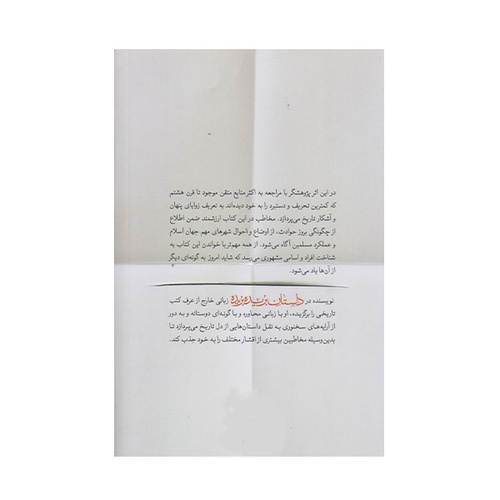 در این اثر پژوهشگر با مراجعه به اکثر منابع متقن موجود تا قرن هشتم
که کمترین تحریف و دستبرد را به خود دیده‌اند به تعریف زوایای پنهان
و آشکار تاریخ می‌پردازد. مخاطب در این کتاب ارزشمند ضمن اطلاع
از چگونگی بروز حوادث، از اوضاع و احوال شهرهای مهم جهان اسلام
و عملکرد مسلمین آگاه می‌شود. از همه مهم‌تر با خواندن این کتاب به
شناخت افراد و اسامی مشهوری می‌رسد که شاید امروز به گونه‌ای دیگر
از آن‌ها یاد می‌شود.
نویسنده در داستان بریده بریده زبانی خارج از عرف کتب
تاریخی را برگزیده، او با زبانی محاوره و با گونه‌ای دوستانه و به دور
از آرایه‌های سخنوری به نقل داستان‌هایی از دل تاریخ می‌پردازد تا
بدین‌وسیله مخاطبین بیشتری از اقشار مختلف را به خود جذب کند.